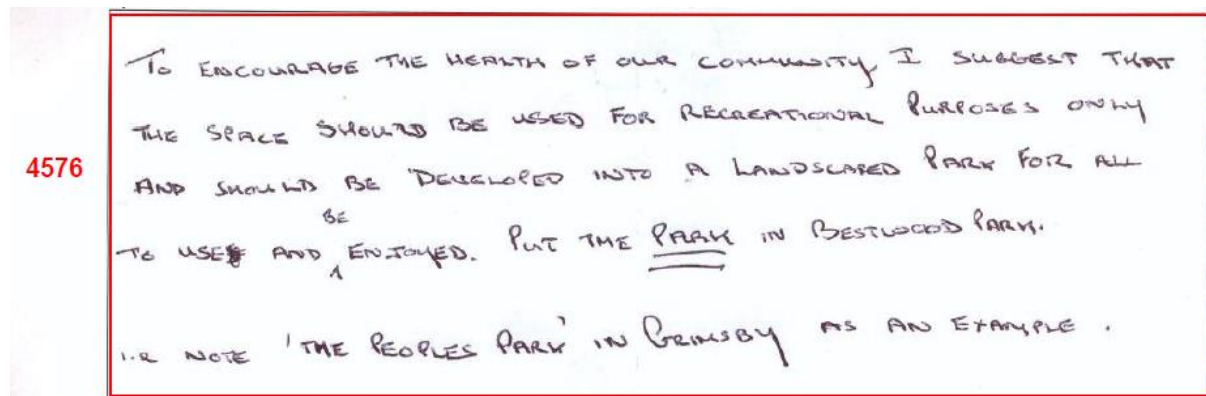 To ENCOURAGE THE HEALTH OF OUR COMMUNITY, I SUGGEST THAT
THE SPACE SHOULD BE USED FOR RECREATIONAL PURPOSES ONLY
4576
AND SHOULD BE DEVELOPED INTO A LANDSCAPED PARK FOR ALL
TO USE AND BE ENJOYED. PUT THE PARK IN BESTWOOD PARK.
I.E NOTE 'THE PEOPLES PARK' IN GRIMSBY AS AN EXAMPLE.